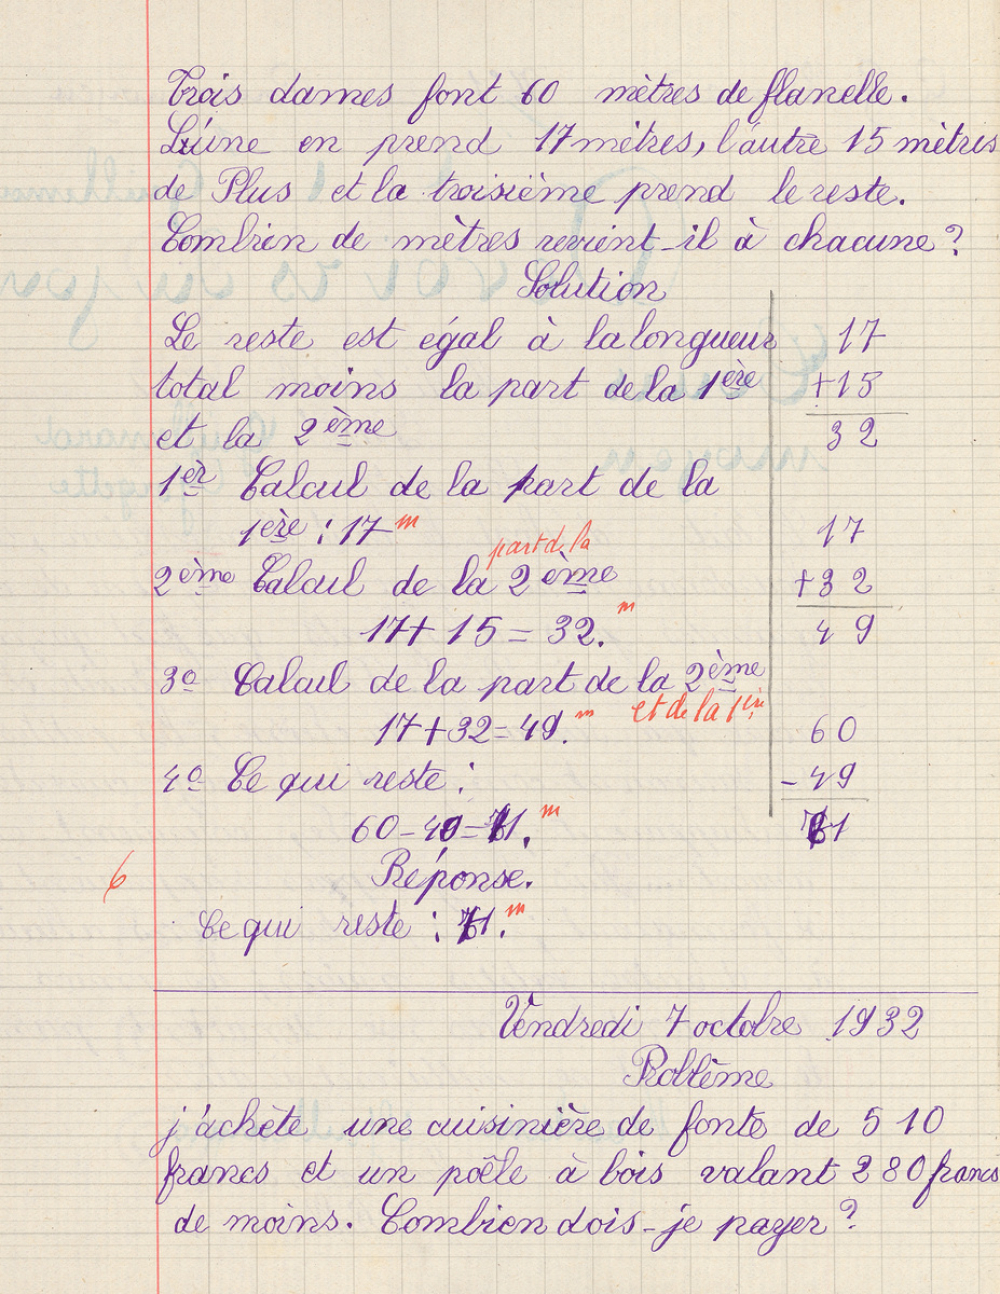 Trois dames font 60 mètres de flanelle.
L'une en prend 17 mètres, l'autre 15 mètres
de Plus et la troisième prend le reste.
Combien de mètres revient-il à chacune ?
Solution
Le reste est égal à la longueur
total moins la part de la 1ère
et la 2ème
1er Calcul de la part de la
1ère : 17 m
part d la
2ème Calcul de la 2ème
17 + 15 = 32. m
3o Calcul de la part de la 2ème
et de la 1ère
17 + 32 = 49. m
4o Ce qui reste :
60 - 49 = 11. m
Réponse.
6
Ce qui reste : 11. m
17
+15
32
17
+32
49
60
-49
11
Vendredi 7 octobre 1932
Problème
j'achète une cuisinière de fonte de 510
francs et un poêle à bois valant 280 francs
de moins. Combien dois-je payer ?